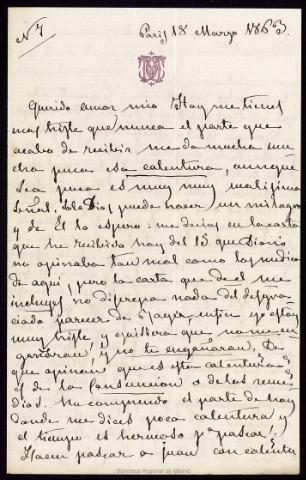 Nº 7
Paris 18 Marzo 1863.
Querido amor mio Hoy me tienes
mas triste que nunca el parte que
acabo de recibir me da mucha
pues esa calentura, aunque
sea poca es muy muy malisima
señal. Solo Dios puede hacer un milagro
y de El lo espero: me decias en la carta
que he recibido hoy del 15 que Osorio
no opinaba tan mal como los medicos
de aqui, pero la carta que de el me
incluyes no difiere nada del desgra-
ciado parecer de estoy
muy triste, y quisiera que no me en-
gañaran, y no te engañaran, De
que opinan que es esta calentura
es de la Consuncion o de los reme-
dios. No comprendo el parte de hoy
donde me dices poca calentura y
el tiempo es hermoso pª pasear;
Hacen pasear a Juan con calentu
Biblioteca Regional de Madrid